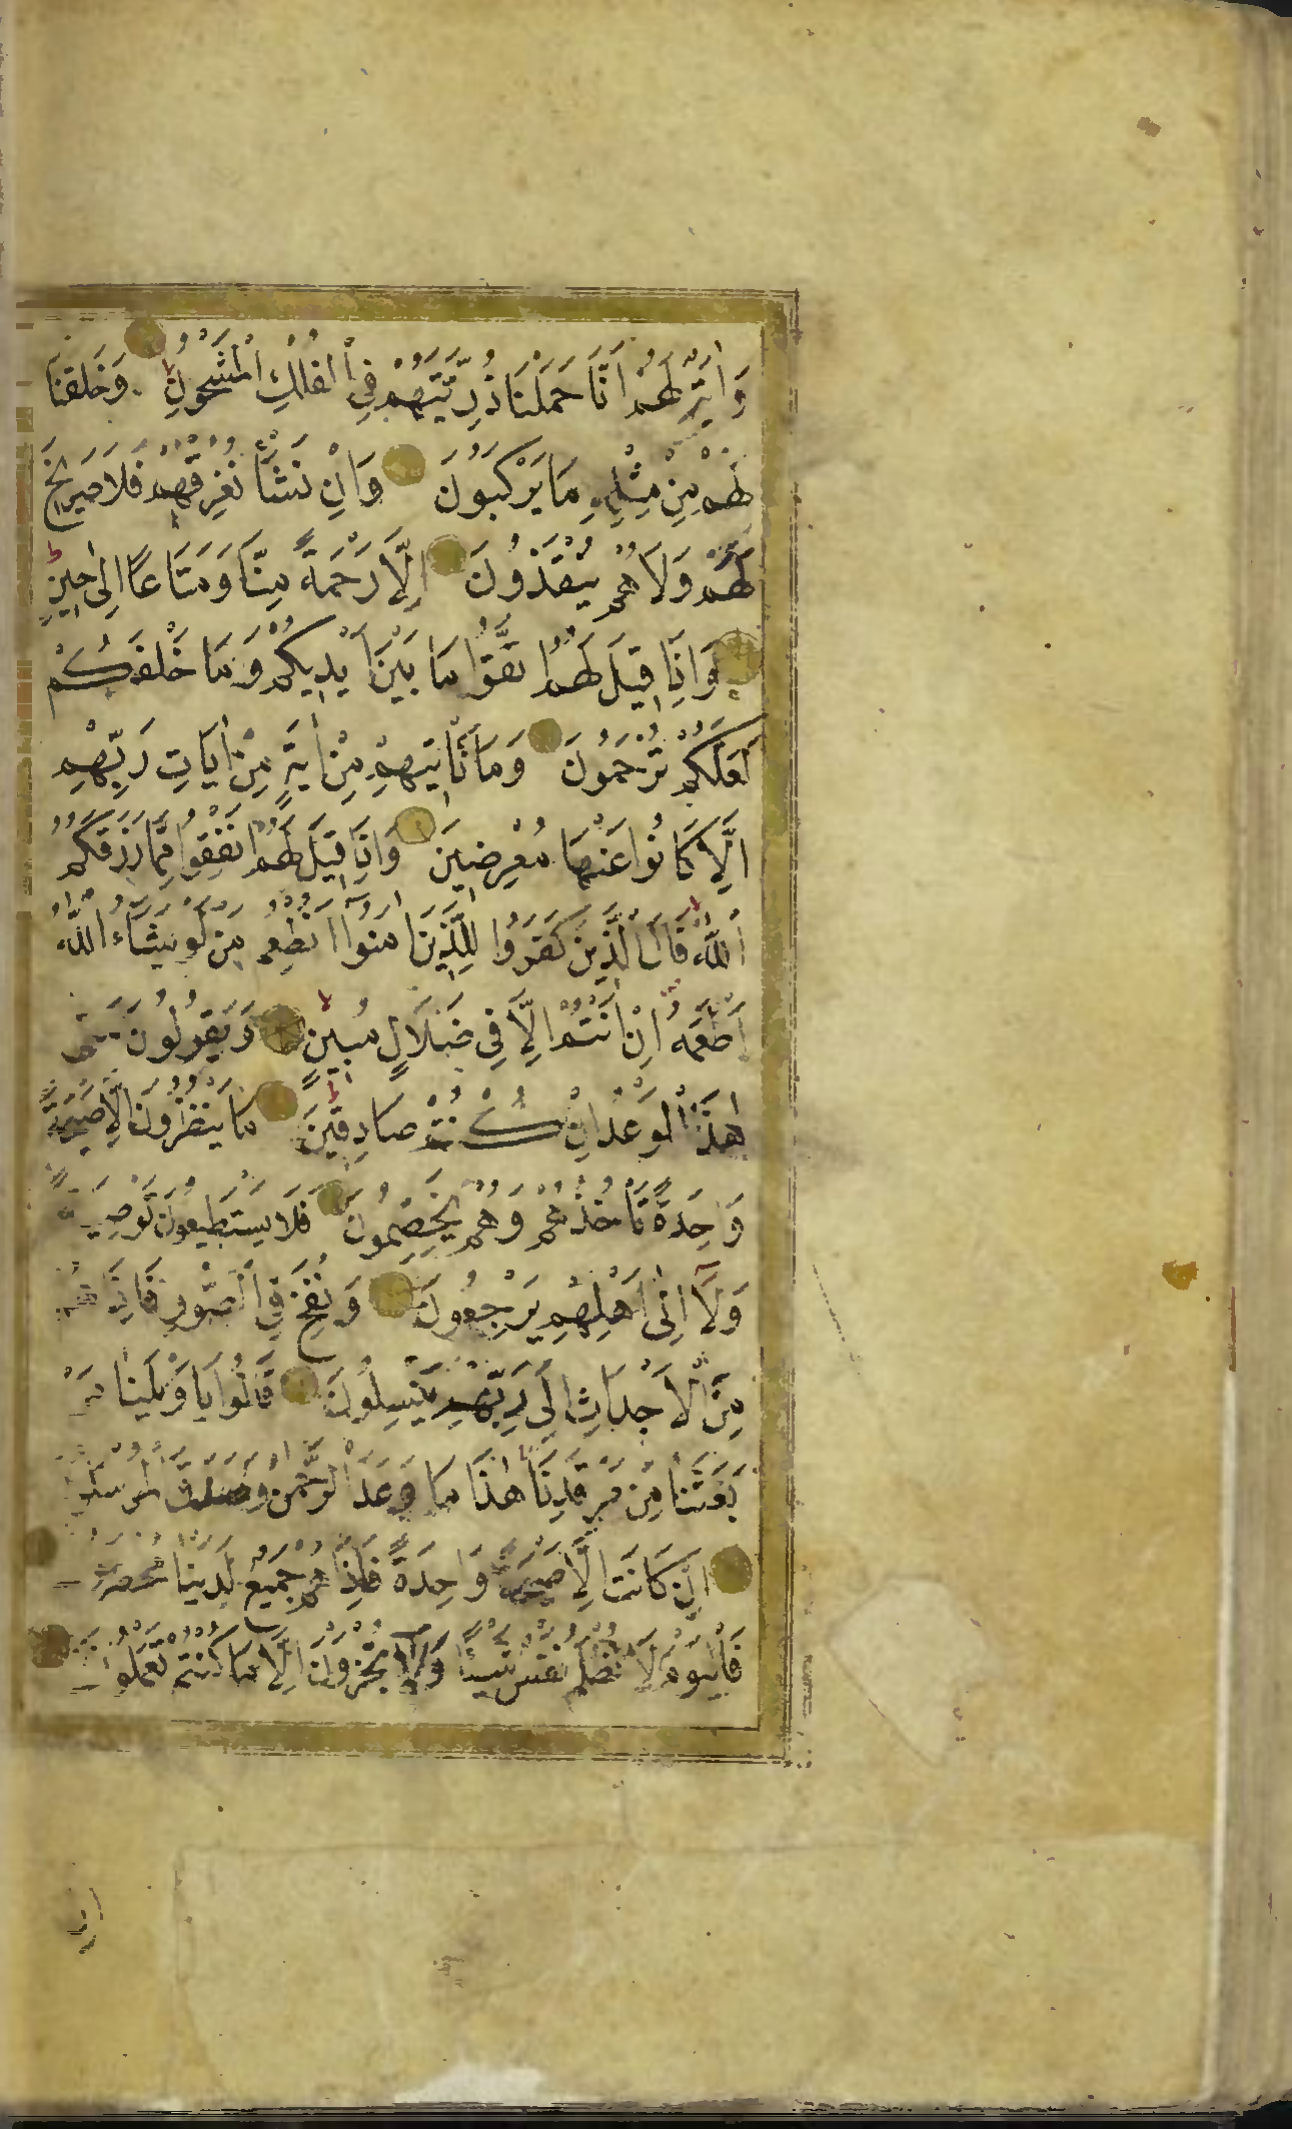 وَاٰيَةٌ لَهُمْ اَنَّا حَمَلْنَا ذُرِّيَّتَهُمْ فِى الْفُلْكِ الْمَشْحُونِ وَخَلَقْنَا
لَهُمْ مِنْ مِثْلِهِ مَا يَرْكَبُونَ وَاِنْ نَشَأْ نُغْرِقْهُمْ فَلَا صَرِيخَ
لَهُمْ وَلَا هُمْ يُنْقَذُونَ اِلَّا رَحْمَةً مِنَّا وَمَتَاعًا اِلٰى حِينٍ
وَاِذَا قِيلَ لَهُمُ اتَّقُوا مَا بَيْنَ اَيْدِيكُمْ وَمَا خَلْفَكُمْ
لَعَلَّكُمْ تُرْحَمُونَ وَمَا تَأْتِيهِمْ مِنْ اٰيَةٍ مِنْ اٰيَاتِ رَبِّهِمْ
اِلَّا كَانُوا عَنْهَا مُعْرِضِينَ وَاِذَا قِيلَ لَهُمْ اَنْفِقُوا مِمَّا رَزَقَكُمُ
اللّٰهُ قَالَ الَّذِينَ كَفَرُوا لِلَّذِينَ اٰمَنُوا اَنُطْعِمُ مَنْ لَوْ يَشَاءُ اللّٰهُ
اَطْعَمَهُ اِنْ اَنْتُمْ اِلَّا فِى ضَلَالٍ مُبِينٍ وَيَقُولُونَ مَتٰى
هٰذَا الْوَعْدُ اِنْ كُنْتُمْ صَادِقِينَ مَا يَنْظُرُونَ اِلَّا صَيْحَةً
وَاحِدَةً تَأْخُذُهُمْ وَهُمْ يَخِصِّمُونَ فَلَا يَسْتَطِيعُونَ تَوْصِيَةً
وَلَا اِلٰى اَهْلِهِمْ يَرْجِعُونَ وَنُفِخَ فِى الصُّورِ فَاِذَا هُمْ
مِنَ الْاَجْدَاثِ اِلٰى رَبِّهِمْ يَنْسِلُونَ قَالُوا يَا وَيْلَنَا مَنْ
بَعَثَنَا مِنْ مَرْقَدِنَا هٰذَا مَا وَعَدَ الرَّحْمٰنُ وَصَدَقَ الْمُرْسَلُونَ
اِنْ كَانَتْ اِلَّا صَيْحَةً وَاحِدَةً فَاِذَا هُمْ جَمِيعٌ لَدَيْنَا مُحْضَرُونَ
فَالْيَوْمَ لَا تُظْلَمُ نَفْسٌ شَيْئًا وَلَا تُجْزَوْنَ اِلَّا مَا كُنْتُمْ تَعْمَلُونَ